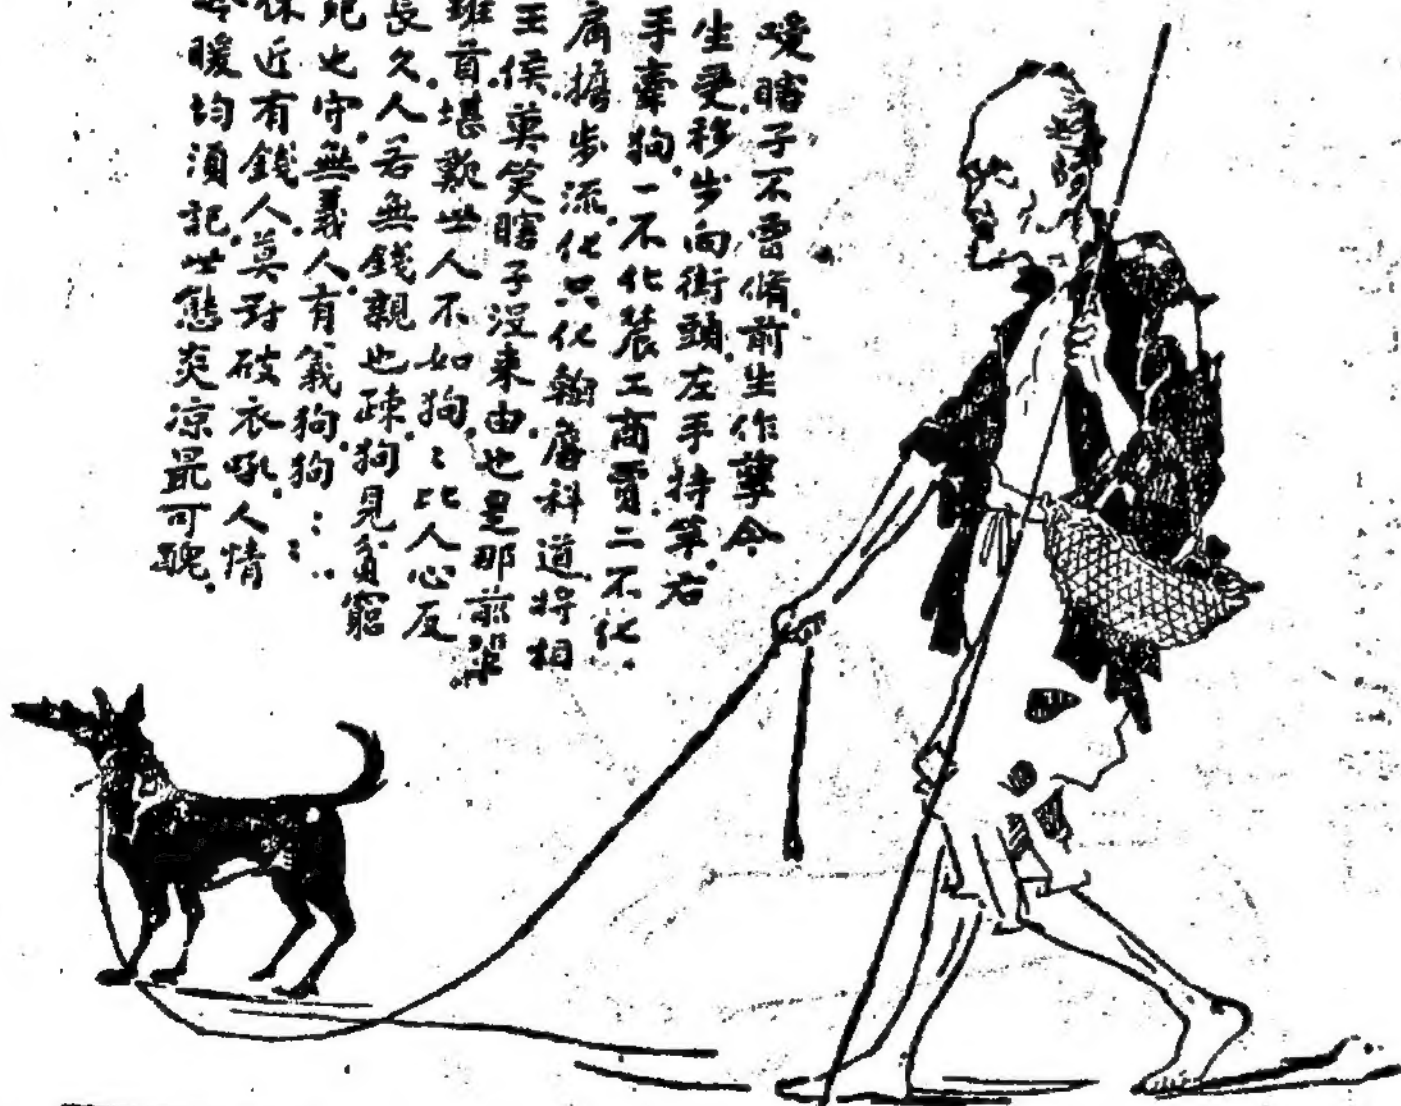 嗳瞎子不曾脩前生作孽今
生受移步向街頭左手持竿右
手牽狗一不化農工商賈二不化
肩擔步流化只化翰詹科道將相
王侯莫笑瞎子沒來由也是那前輩
班首堪歎世人不如狗〻比人心反
長久人若無錢親也疎狗見貧窮
死也守無義人有義狗狗〻〻
休近有錢人莫對破衣吼人情
冷暖均須記世態炎凉最可醜